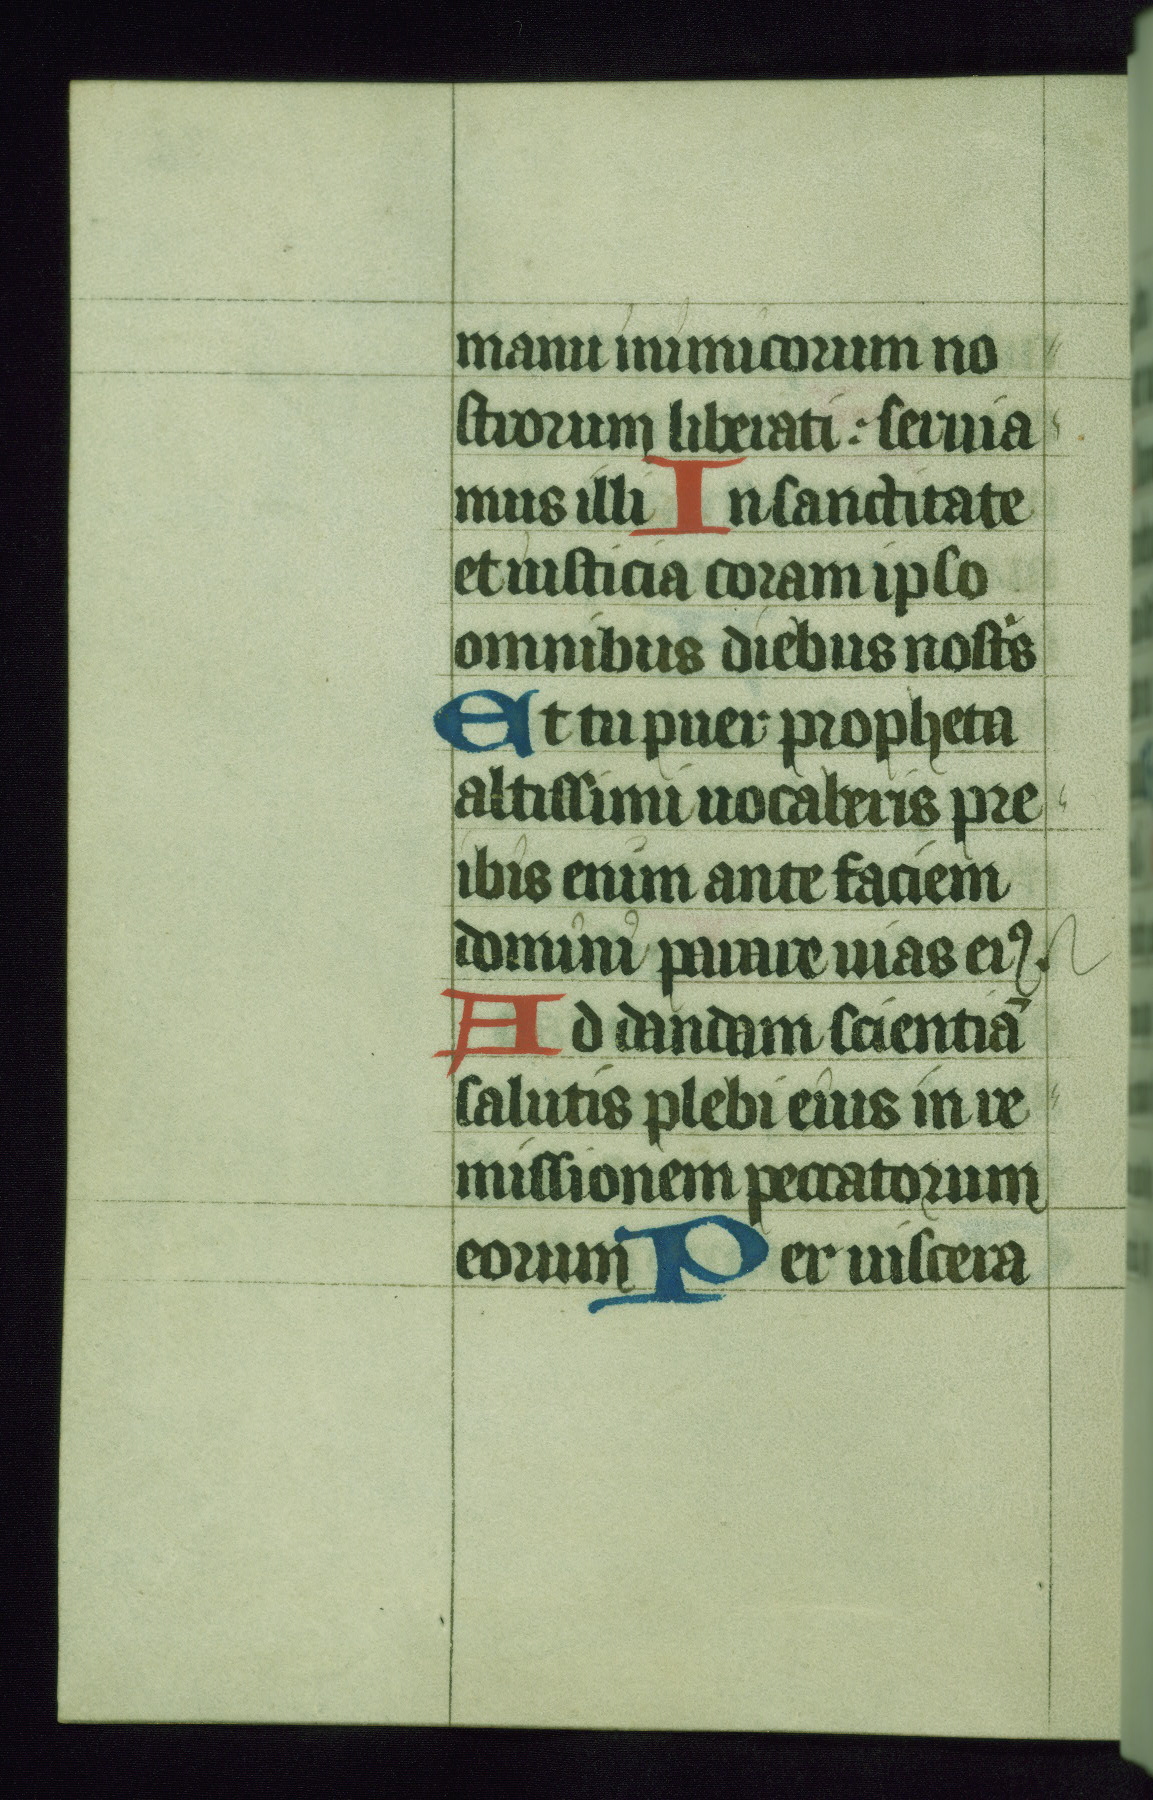 manu inimicorum no
strorum liberati : seruia
mus illi In sanctitate
et iusticia coram ipso
omnibus diebus nost's
Et tu puer propheta
altissimi uocaberis pre
ibis enim ante faciem
domini parare uias eiꝰ.
Ad dandam scientiā
salutis plebi eius in re
missionem peccatorum
eorum Per uiscera